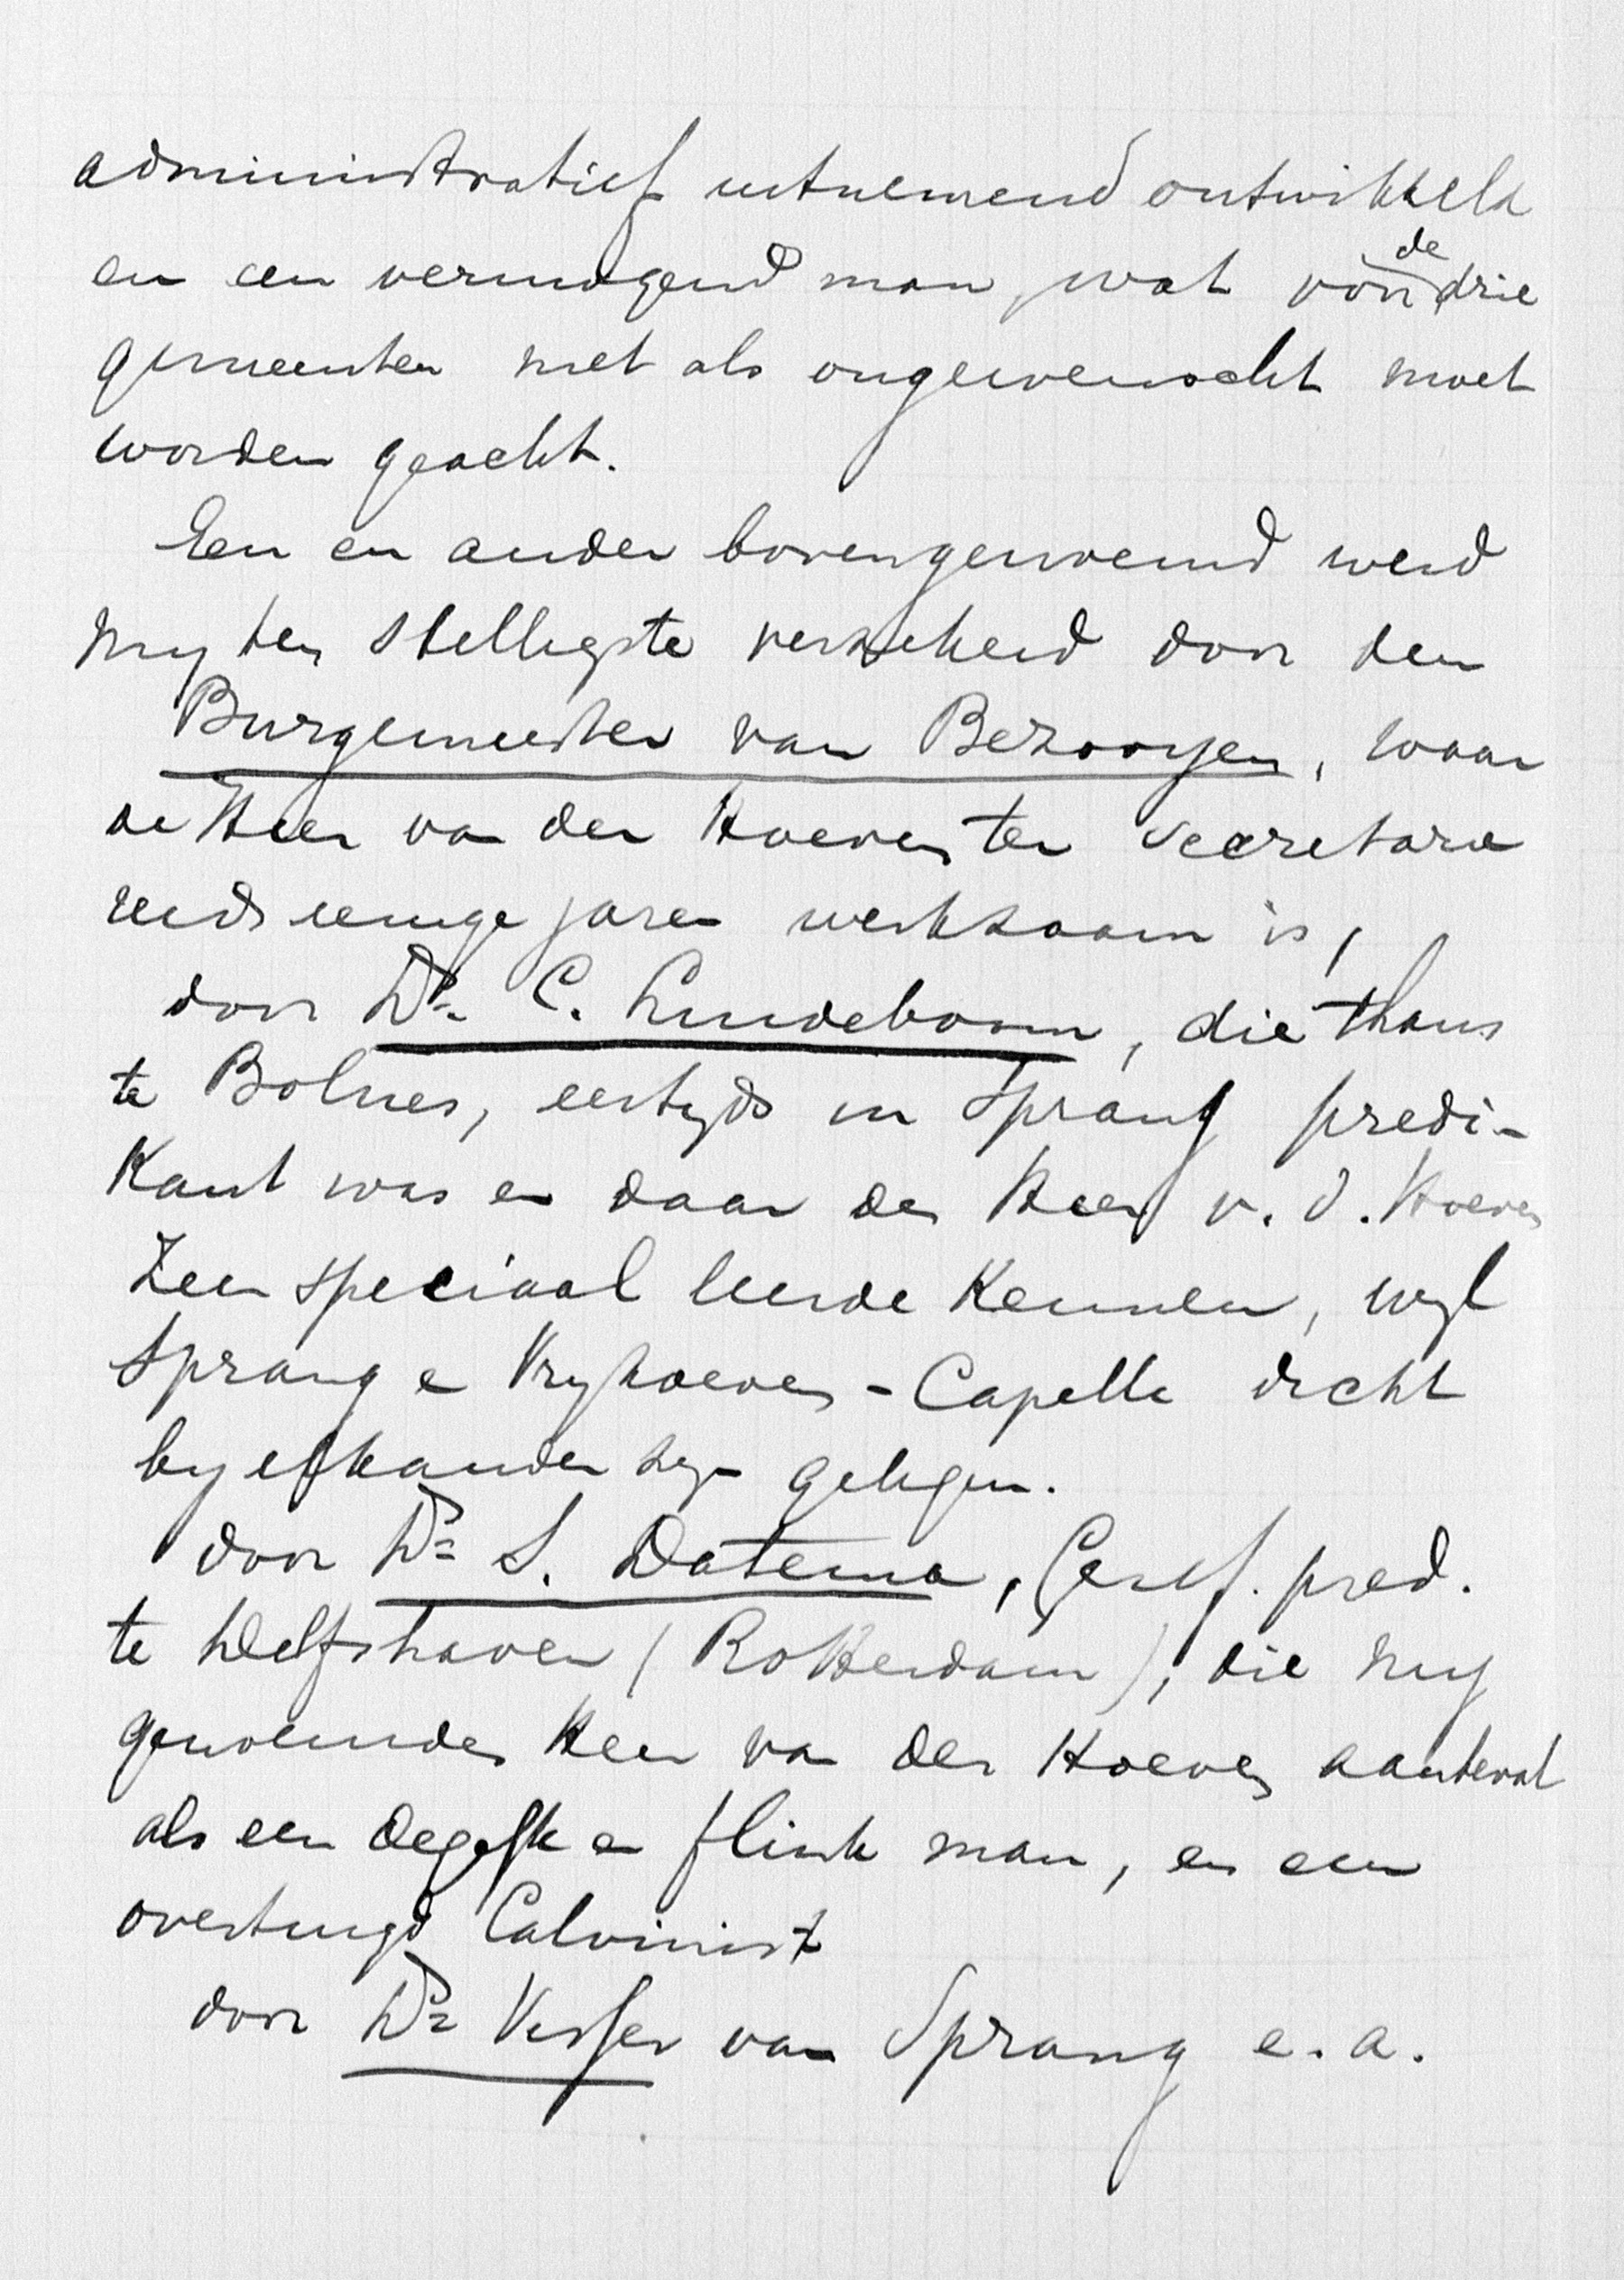 administratief uitnemend ontwikkeld
en een vermogend man, wat voor de drie
gemeenten niet als ongewenscht moet
worden geacht.
Een en ander bovengenoemd werd
my ten stelligste verzekerd door den
Burgemeester van Bezooyen, waar
de Heer van der Hoeven ter secretarie
reeds eenige jaren werkzaam is,
door Ds. C. Lindeboom, die thans
te Bolnes, eertyds in Sprang predi-
kant was en daar den Heer v. d. Hoeven
zeer speciaal leerde kennen, wyl
Sprang en Vryhoeven-Capelle dicht
by elkander zyn gelegen.
door Ds. S. Datema, Geref. pred.
te Delfshaven (Rotterdam), die my
genoemden Heer van der Hoeven aanbeval
als een degelyk en flink man, en een
overtuigd Calvinist
door Ds. Visser van Sprang e. a.